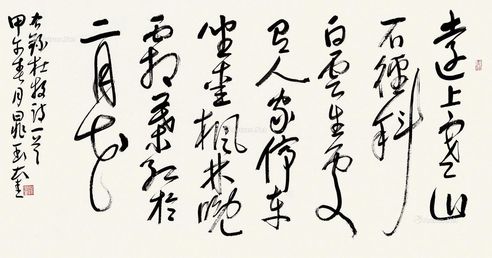 遠上寒山
石徑斜
白雲生處
有人家停車
坐愛楓林晚
霜葉紅於
二月花
右錄杜牧詩一首
甲午春月晁玉奎